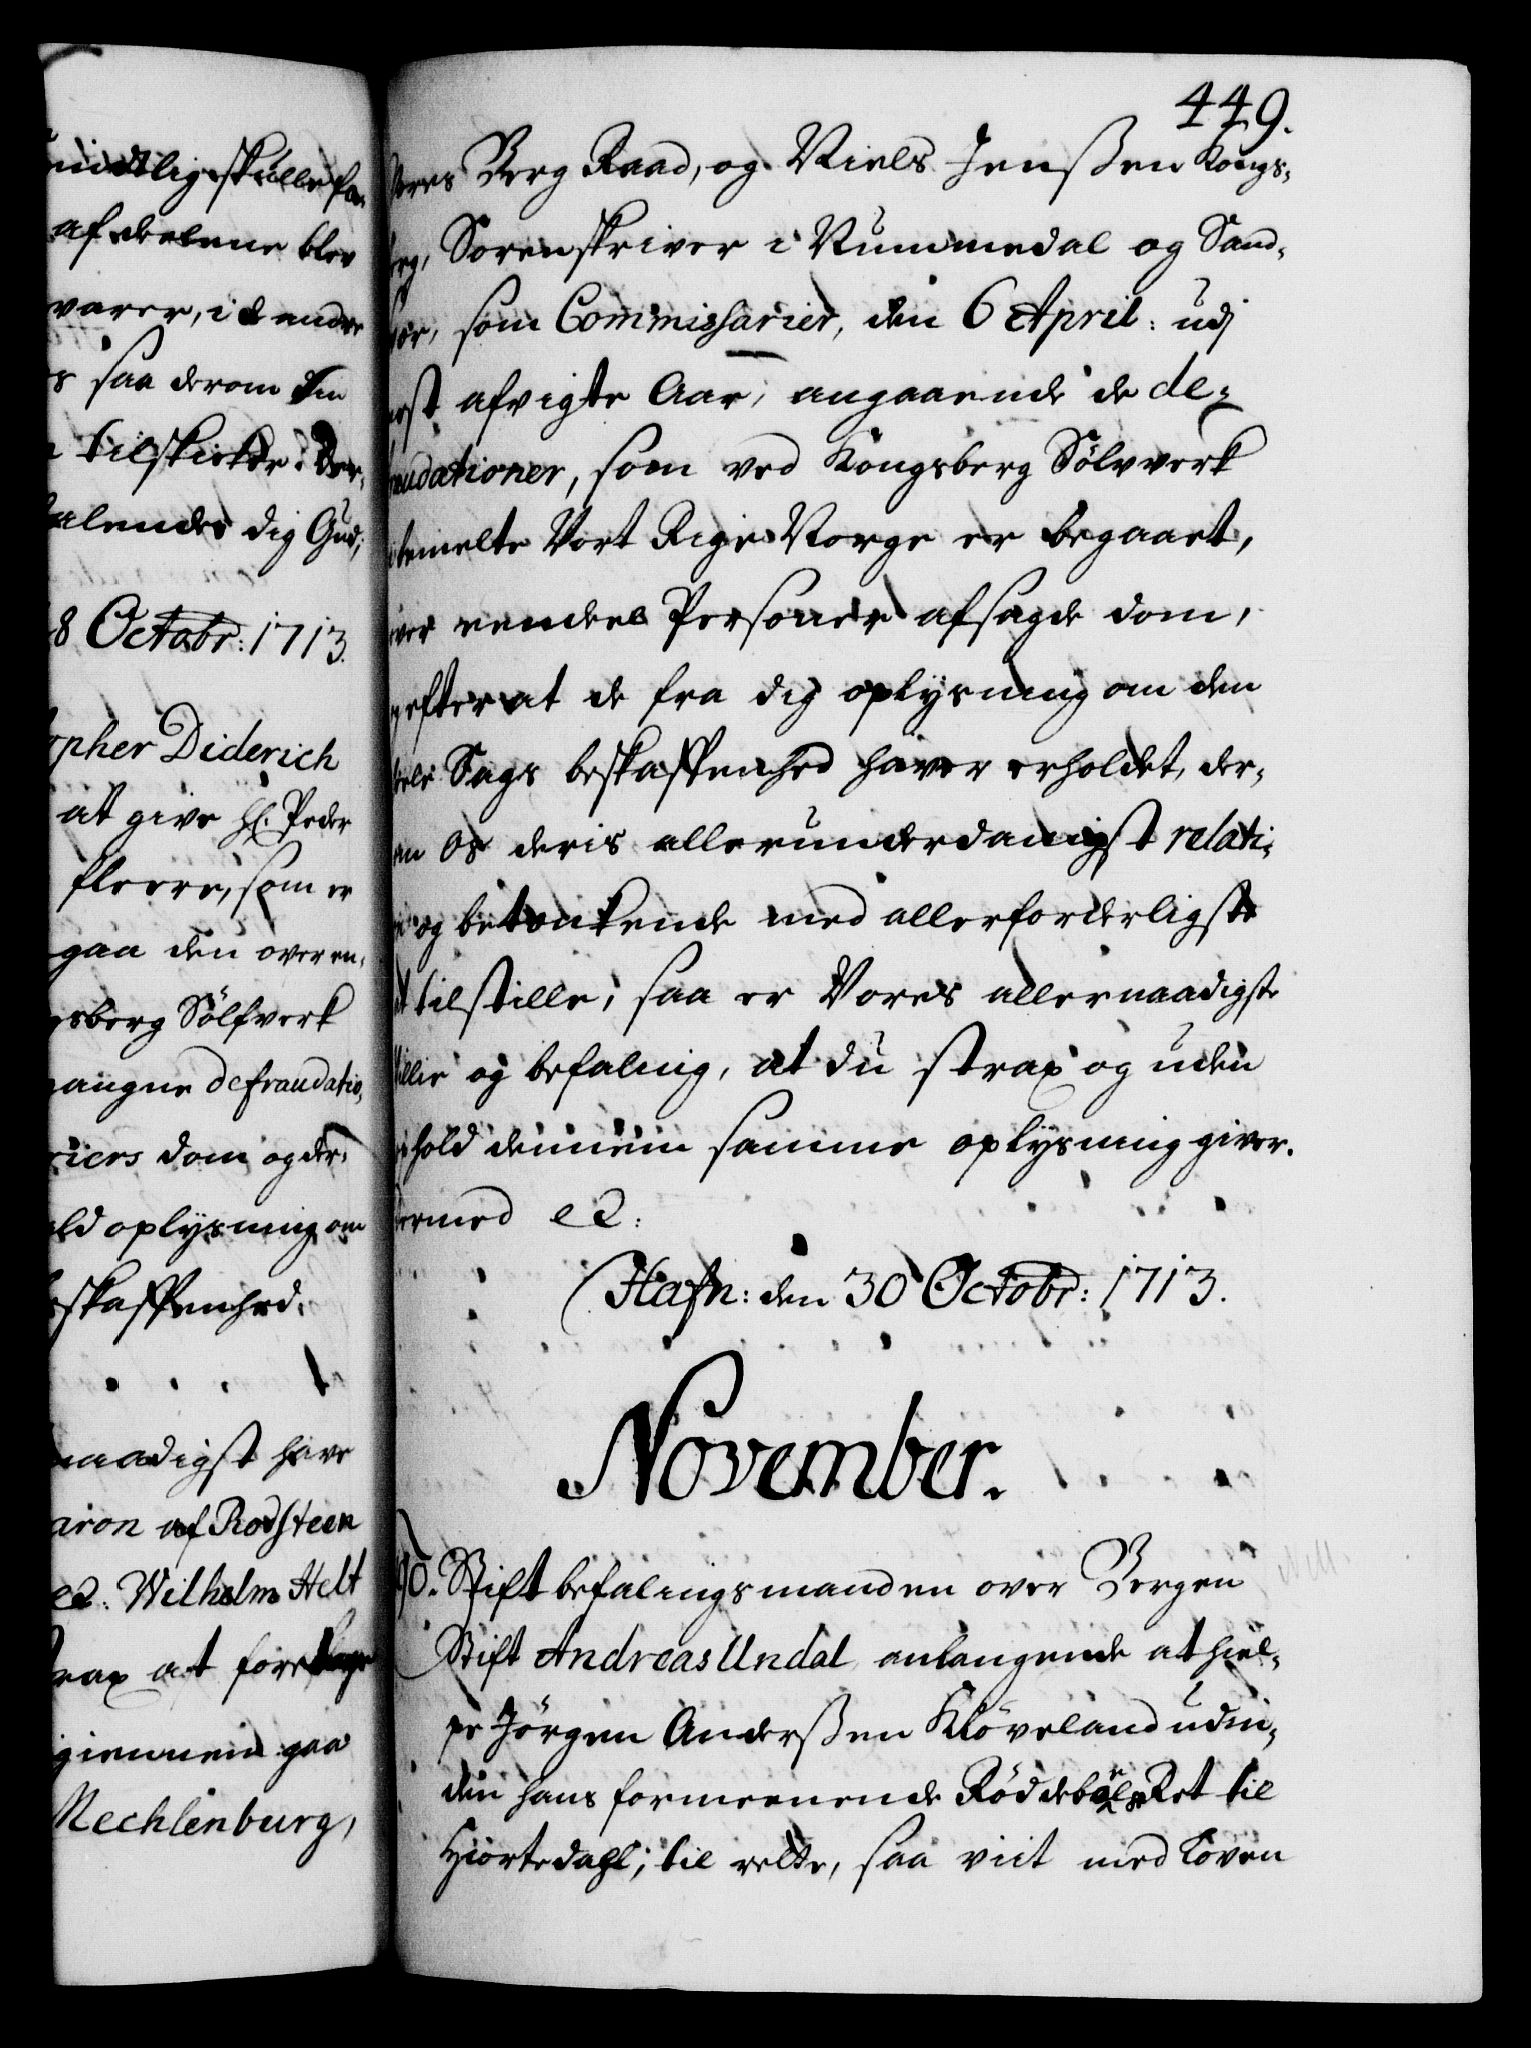 449.
Vores Berg Raad, og Niels Jenßen Kongs-
berg, Sorenskriver i Nummedal og Sand-
som Commissarier, den 6 April: udi
afvigte Aar, angaaende de de-
fraudationer, som ved Kongsberg Sølvverk
bemelte Vort Rige Norge er begaaet,
over eendeel Personer afsagde dom,
efter at de fra dig oplysning om den
heele Sags beskaffenhed haver erholdet, der-
Os deris allerunderdanigst relati-
og betenkende med allerforderligste
tilstille; saa er Vores allernaadigste
Villie og befaling, at du strax og uden
ophold dennem samme oplysning giver.
Dermed ec:
Hafn: den 30 Octobr: 1713.
November.
90. Stiftbefalingsmanden over Bergen
Stift Andreas Undal anlangende at hiel-
pe Jörgen Anderßen Klöveland udin-
den hans formeenende Röddebøls Ret til
Hiortedahl; til rette, saa viit med Loven
skulle
af deelene blev
varer, i de andre
saa derom din
tilskikke. Der-
befalendes dig Gud;
28 Octobr: 1713.
opher Diderich
at give Hl. Peder
fleere, som er
gaa den over en-
gsberg Sölfverk
gangne defraudatio-
riers dom og der-
old oplysning om
beskaffenhed.
naadigst have
aron af Rodsteen
ec. Wilhelm Helt
strax at foretage
giennem gaa
Mechlenburg,